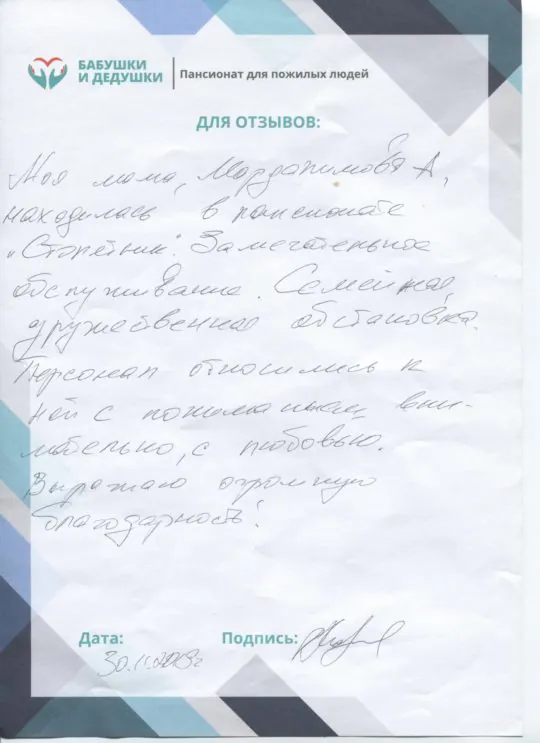 БАБУШКИ
И ДЕДУШКИ
Пансионат для пожилых людей
ДЛЯ ОТЗЫВОВ:
Моя мама, А,
находилась в пансионате
„Столетник". Замечательное
обслуживание. Семейная,
дружественная обстановка.
Персонал относились к
ней с пониманием, вни-
мательно, с любовью.
Выражаю огромную
благодарность!
Дата:
Подпись:
30.11.2019г